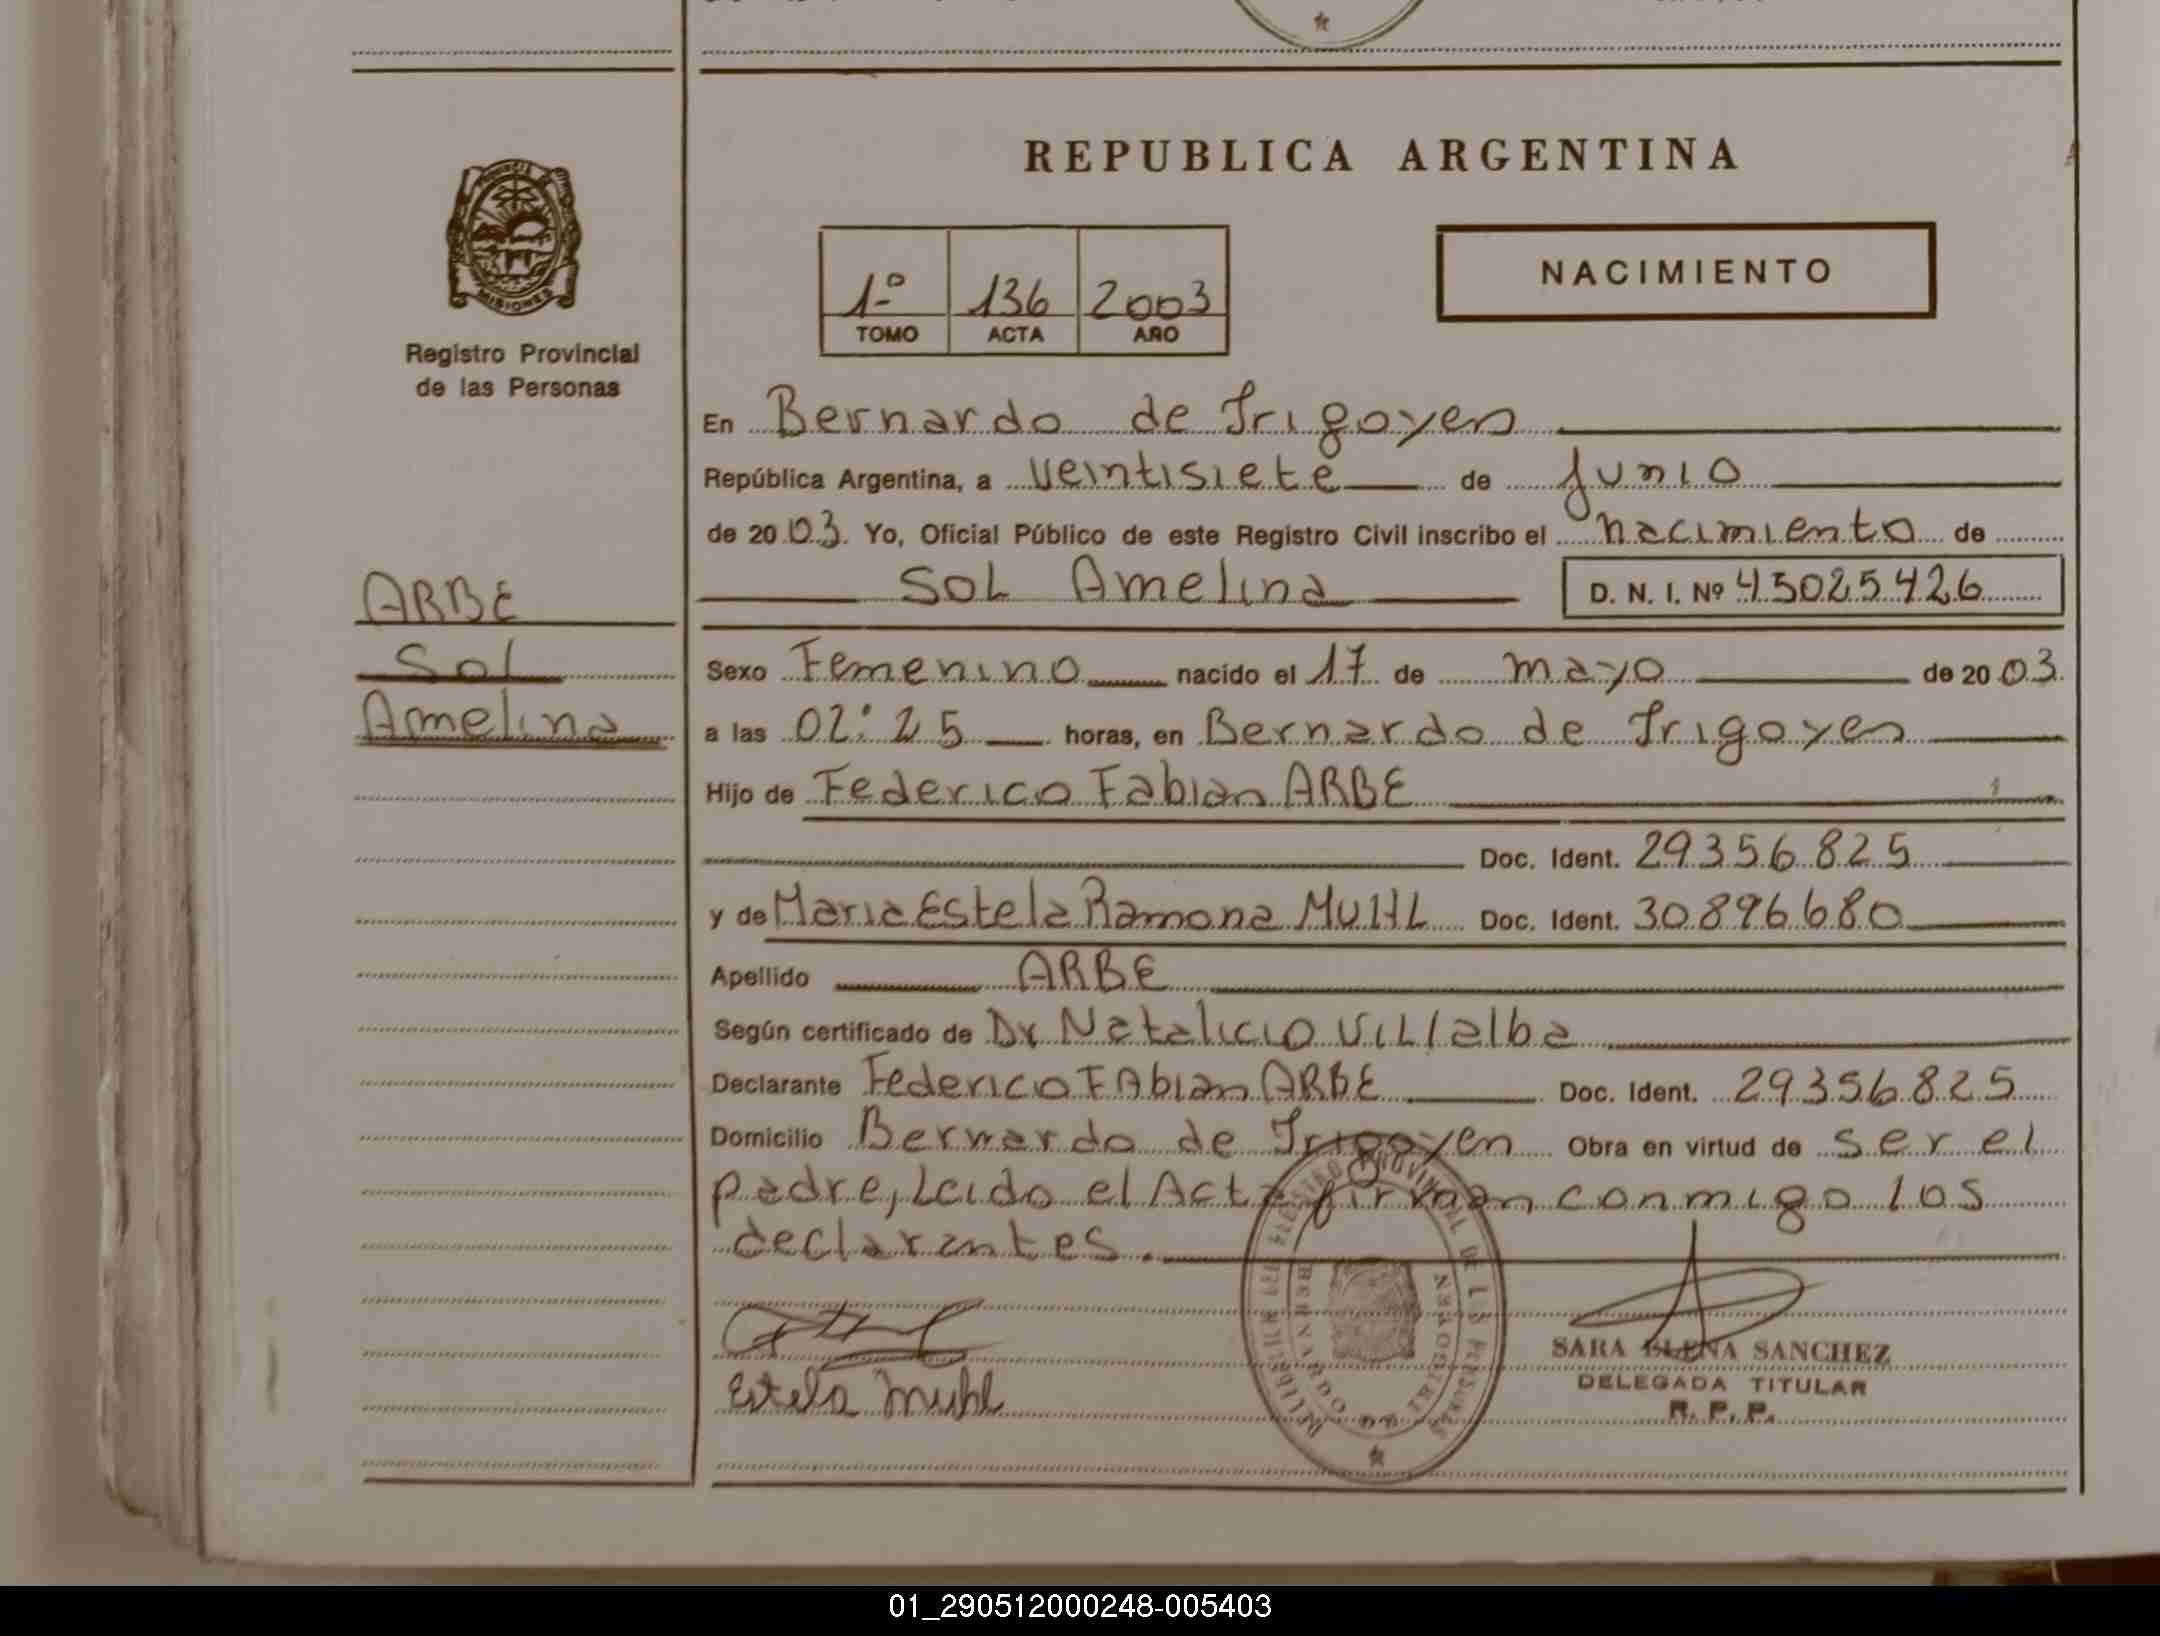 REPUBLICA ARGENTINA
PROVINCIA DE
MISIONES
Registro Provincial
de las Personas
1º 136 2003
TOMO ACTA AÑO
NACIMIENTO
En Bernardo de Irigoyen
República Argentina, a veintisiete de Junio
de 20 03. Yo, Oficial Público de este Registro Civil inscribo el nacimiento de
SOL Amelina D. N. I. Nº 45025426
ARBE
Sol
Amelina
Sexo Femenino nacido el 17 de mayo de 20 03
a las 02:25 horas, en Bernardo de Irigoyen
Hijo de Federico Fabian ARBE
Doc. Ident. 29356825
y de Maria Estela Ramona MUHL Doc. Ident. 30896680
Apellido ARBE
Según certificado de Dr Natalicio Villalba
Declarante Federico Fabian ARBE Doc. Ident. 29356825
Domicilio Bernardo de Irigoyen Obra en virtud de ser el
padre, Leido el Acta firman conmigo los
declarantes.
Estela Muhl
SARA ELENA SANCHEZ
DELEGADA TITULAR
R. P. P.
REGISTRO PROVINCIAL DE LAS PERSONAS
BERNARDO DE IRIGOYEN
01_290512000248-005403